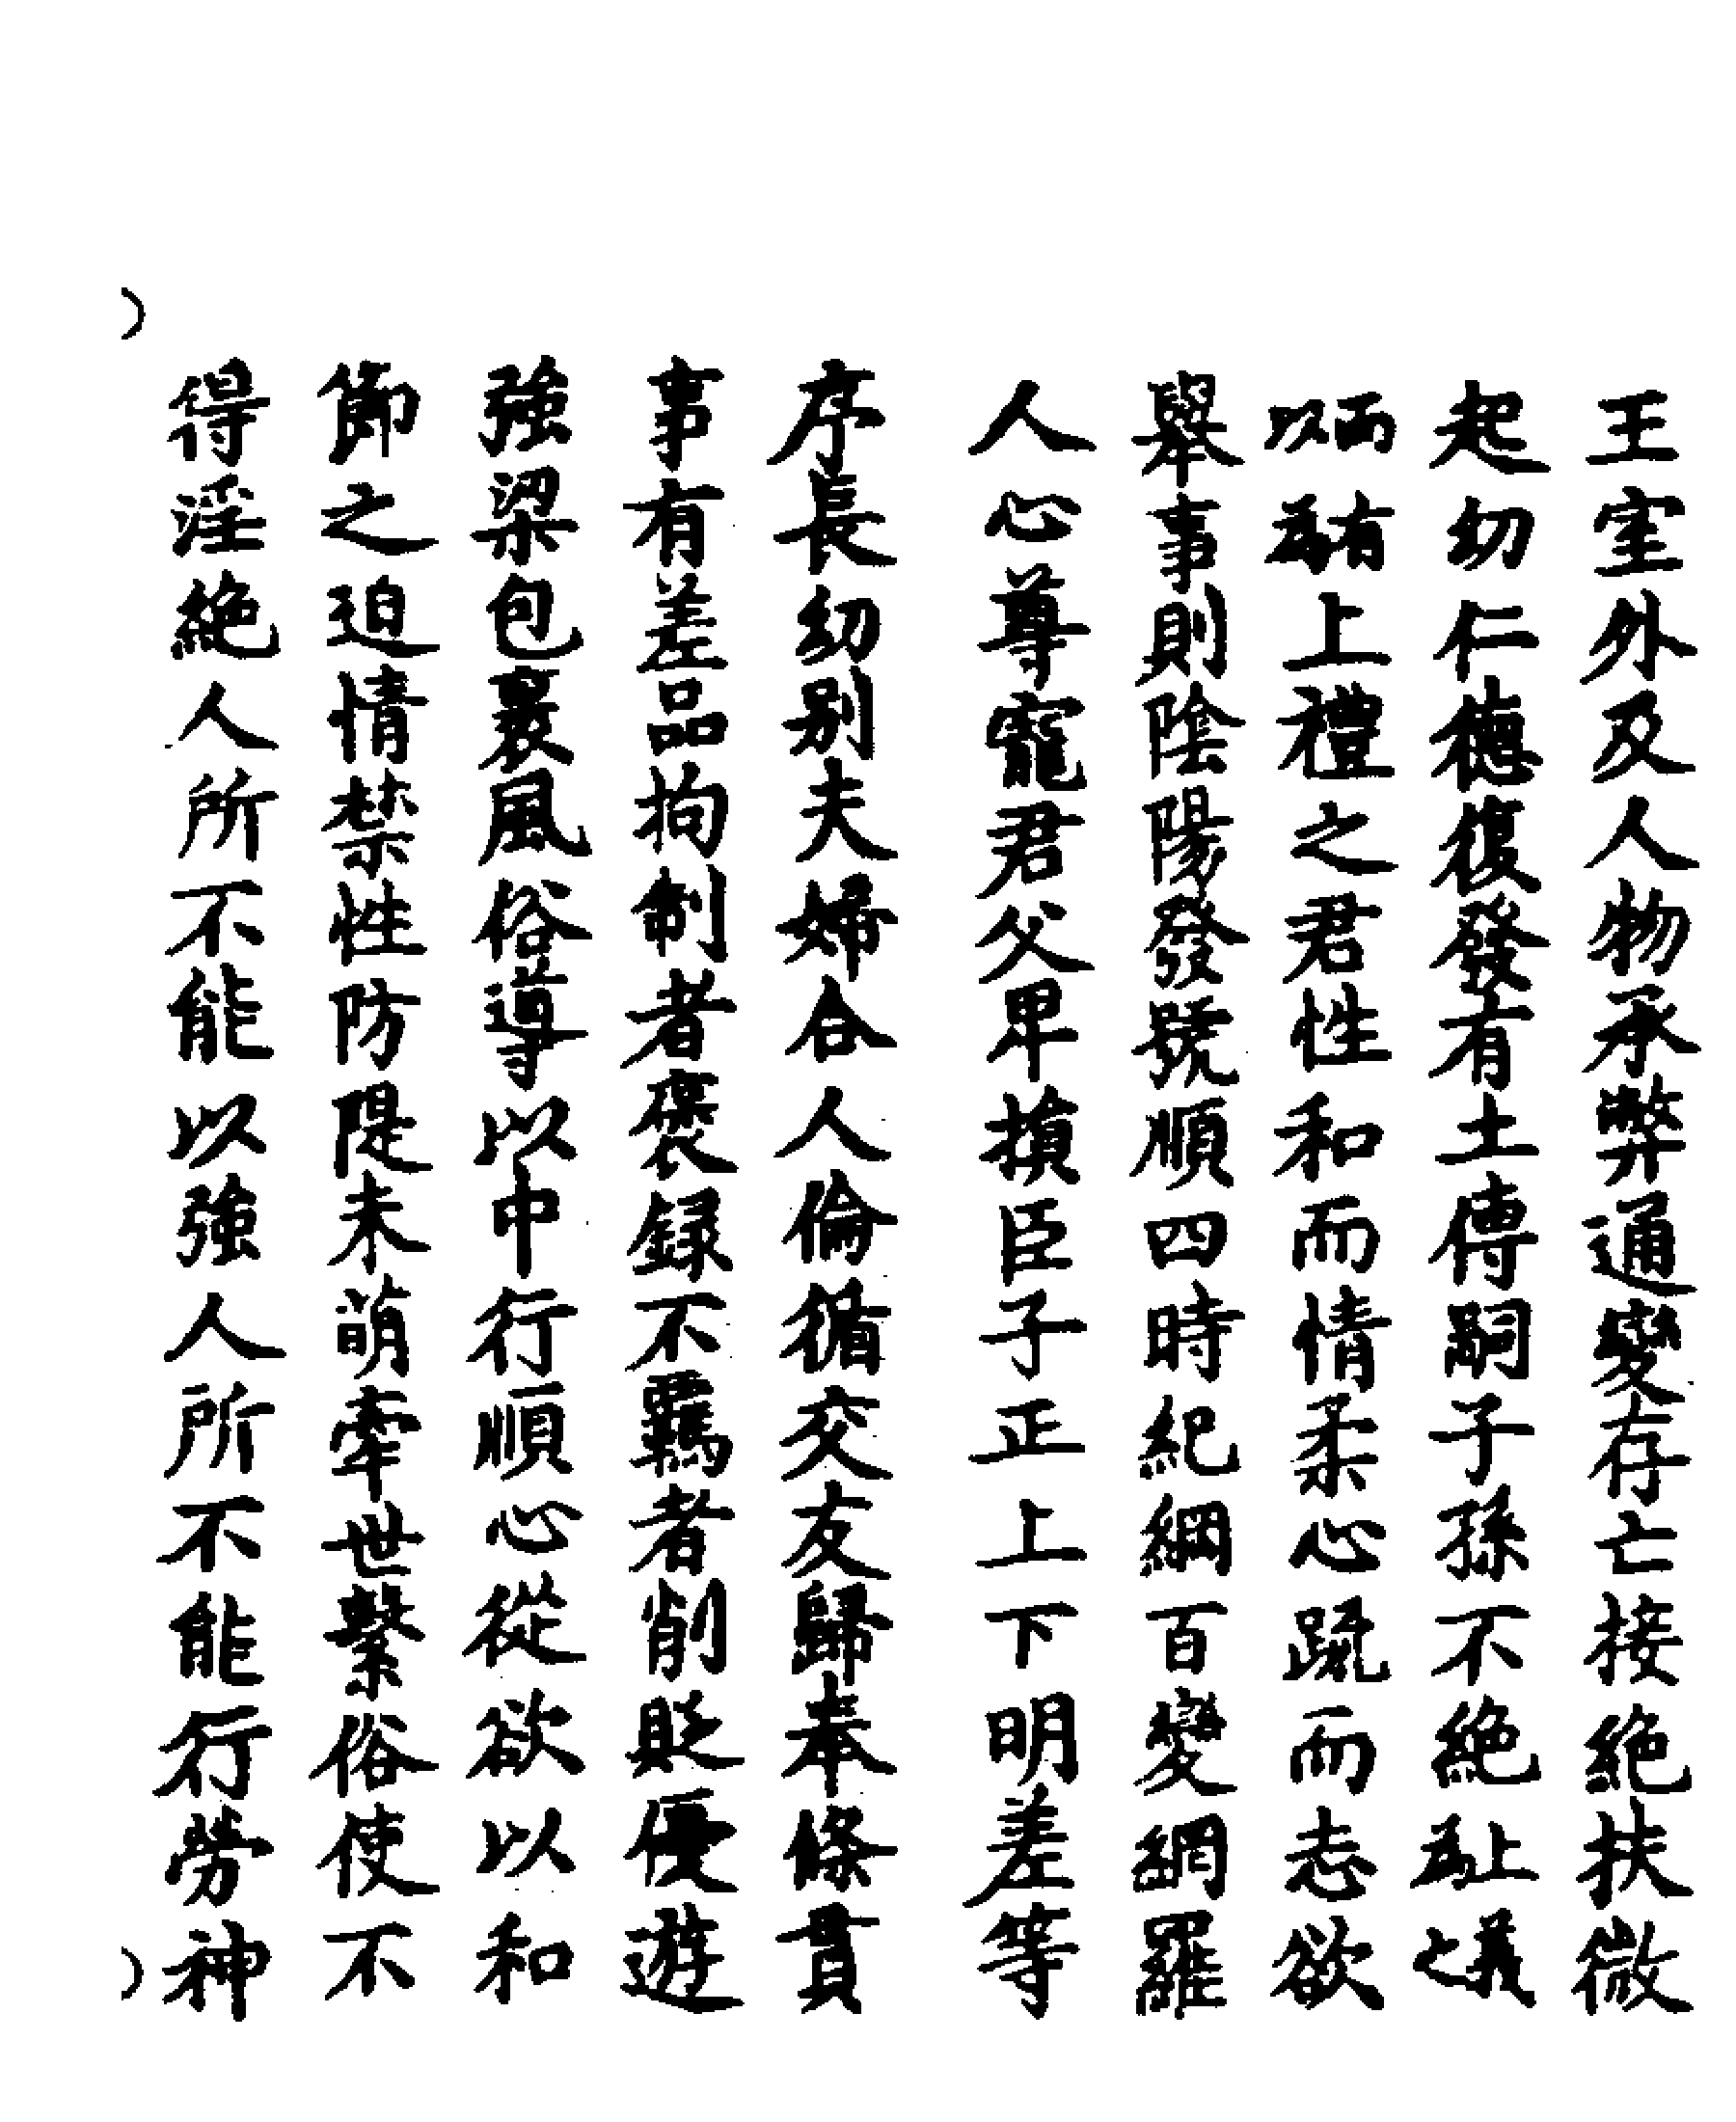 王室外及人物承弊通變存亡接絶扶微
起幼仁德復發有土傳嗣子孫不絶上義為之
而有以為上禮之君性和而情柔心疏而志欲
舉事則陰陽發號順四時紀綱百變網羅
人心尊寵君父卑損臣子正上下明差等
序長幼别夫婦合人倫循交友歸奉條貫
事有差品拘制者褒録不羈者削貶優遊
強梁包裹風俗導以中行順心從欲以和
節之迫情禁性防隄未萌牽世繫俗使不
得淫絶人所不能以強人所不能行勞神